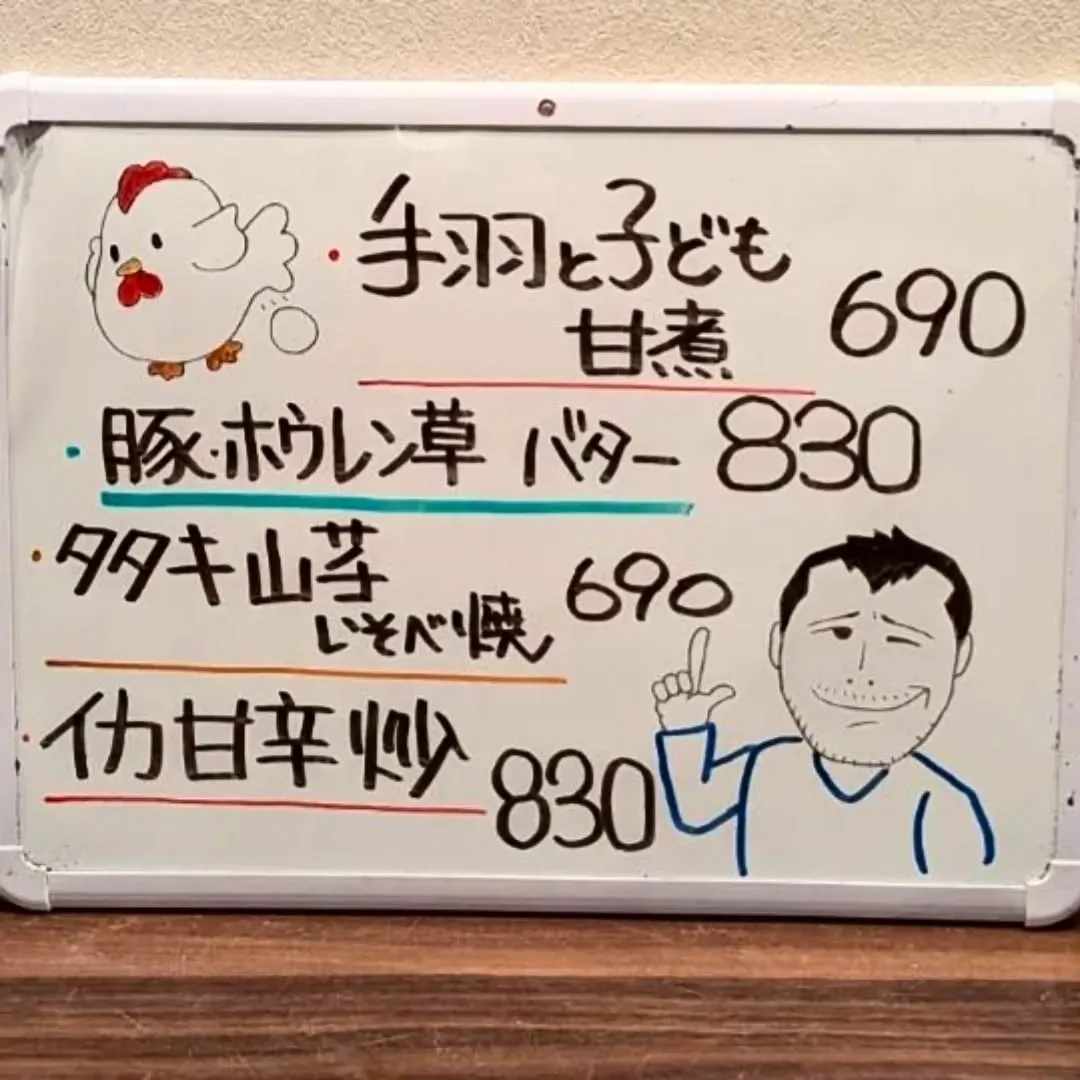 ・手羽と子ども
甘煮 690
・豚・ホウレン草 バター 830
・タタキ山芋 690
いそべ焼
・イカ甘辛炒 830